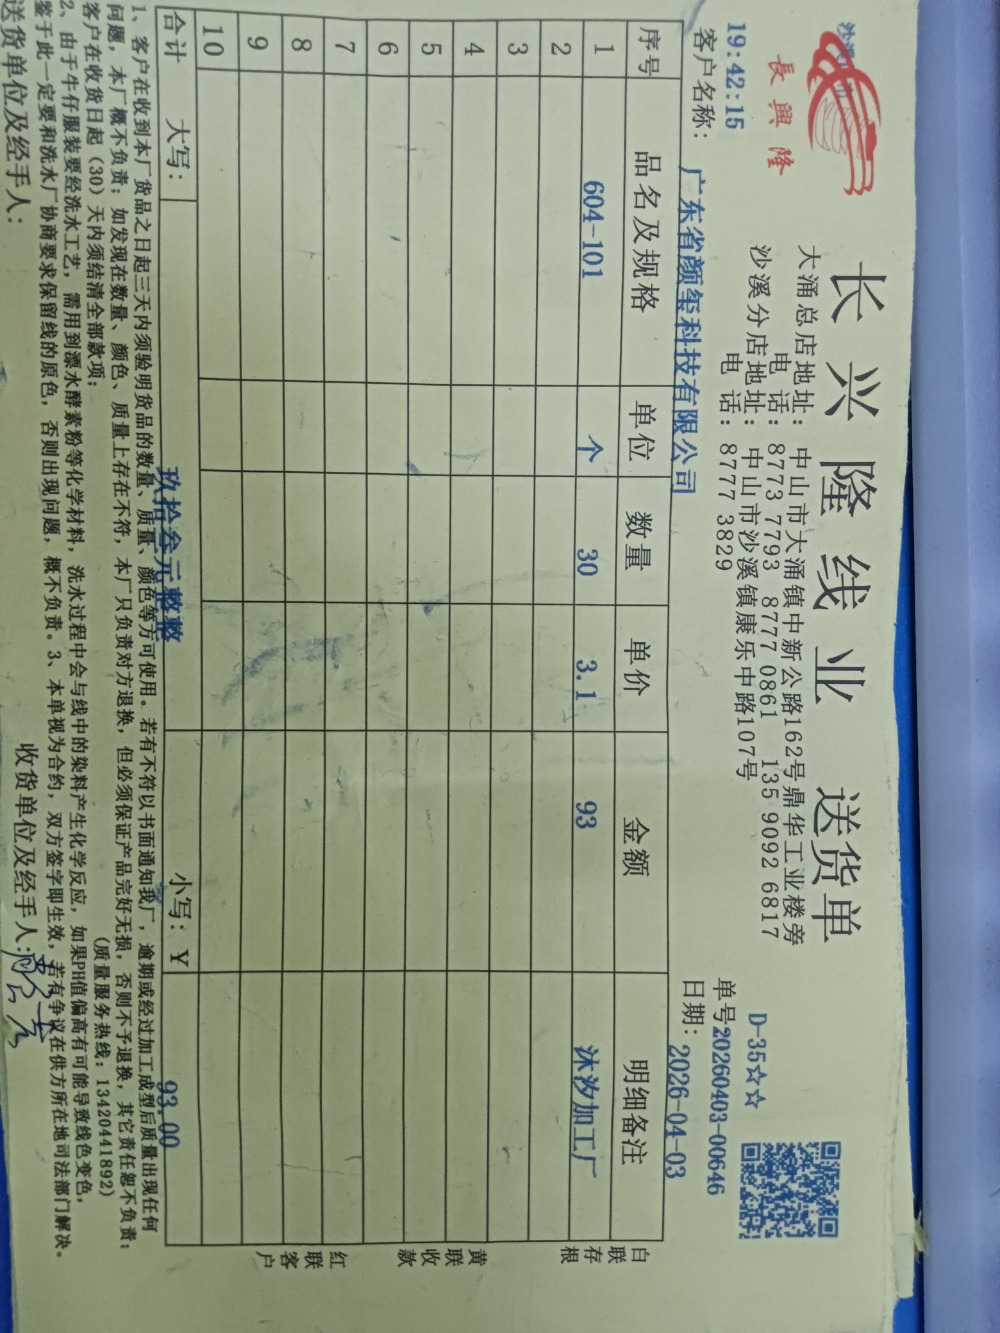 長興隆
长兴隆线业 送货单
大涌总店地址: 中山市大涌镇中新公路162号鼎华工业楼旁
电 话: 8773 7793 8777 0861 135 9092 6817
沙溪分店地址: 中山市沙溪镇康乐中路107号
电 话: 8777 3829
D-35☆☆☆
19:42:15
单号20260403-00646
客户名称: 广东省颜玺科技有限公司
日期: 2026-04-03
序号 品名及规格 单位 数量 单价 金额 明细备注
1 604-101 个 30 3.1 93 沐汐加工厂
2
3
4
5
6
7
8
9
10
合计 大写: 玖拾叁元整整 小写: ¥ 93.00
白联存根
黄联收款
红联客户
1、客户在收到本厂货品之日起三天内须验明货品的数量、质量、颜色等方可使用。若有不符以书面通知我厂，逾期或经过加工成型后质量出现任何
问题，本厂概不负责；如发现在数量、颜色、质量上存在不符，本厂只负责对方退换，但必须保证产品完好无损，否则不予退换，其它责任恕不负责；
客户在收货日起（30）天内须结清全部款项； (质量服务热线: 13420441892)
2、由于牛仔服装要经洗水工艺，需用到漂水酵素粉等化学材料，洗水过程中会与线中的染料产生化学反应，如果PH值偏高有可能导致线色变色，
鉴于此一定要和洗水厂协商要求保留线的原色，否则出现问题，概不负责。3、本单视为合约，双方签字即生效，若有争议在供方所在地司法部门解决。
送货单位及经手人: 收货单位及经手人: